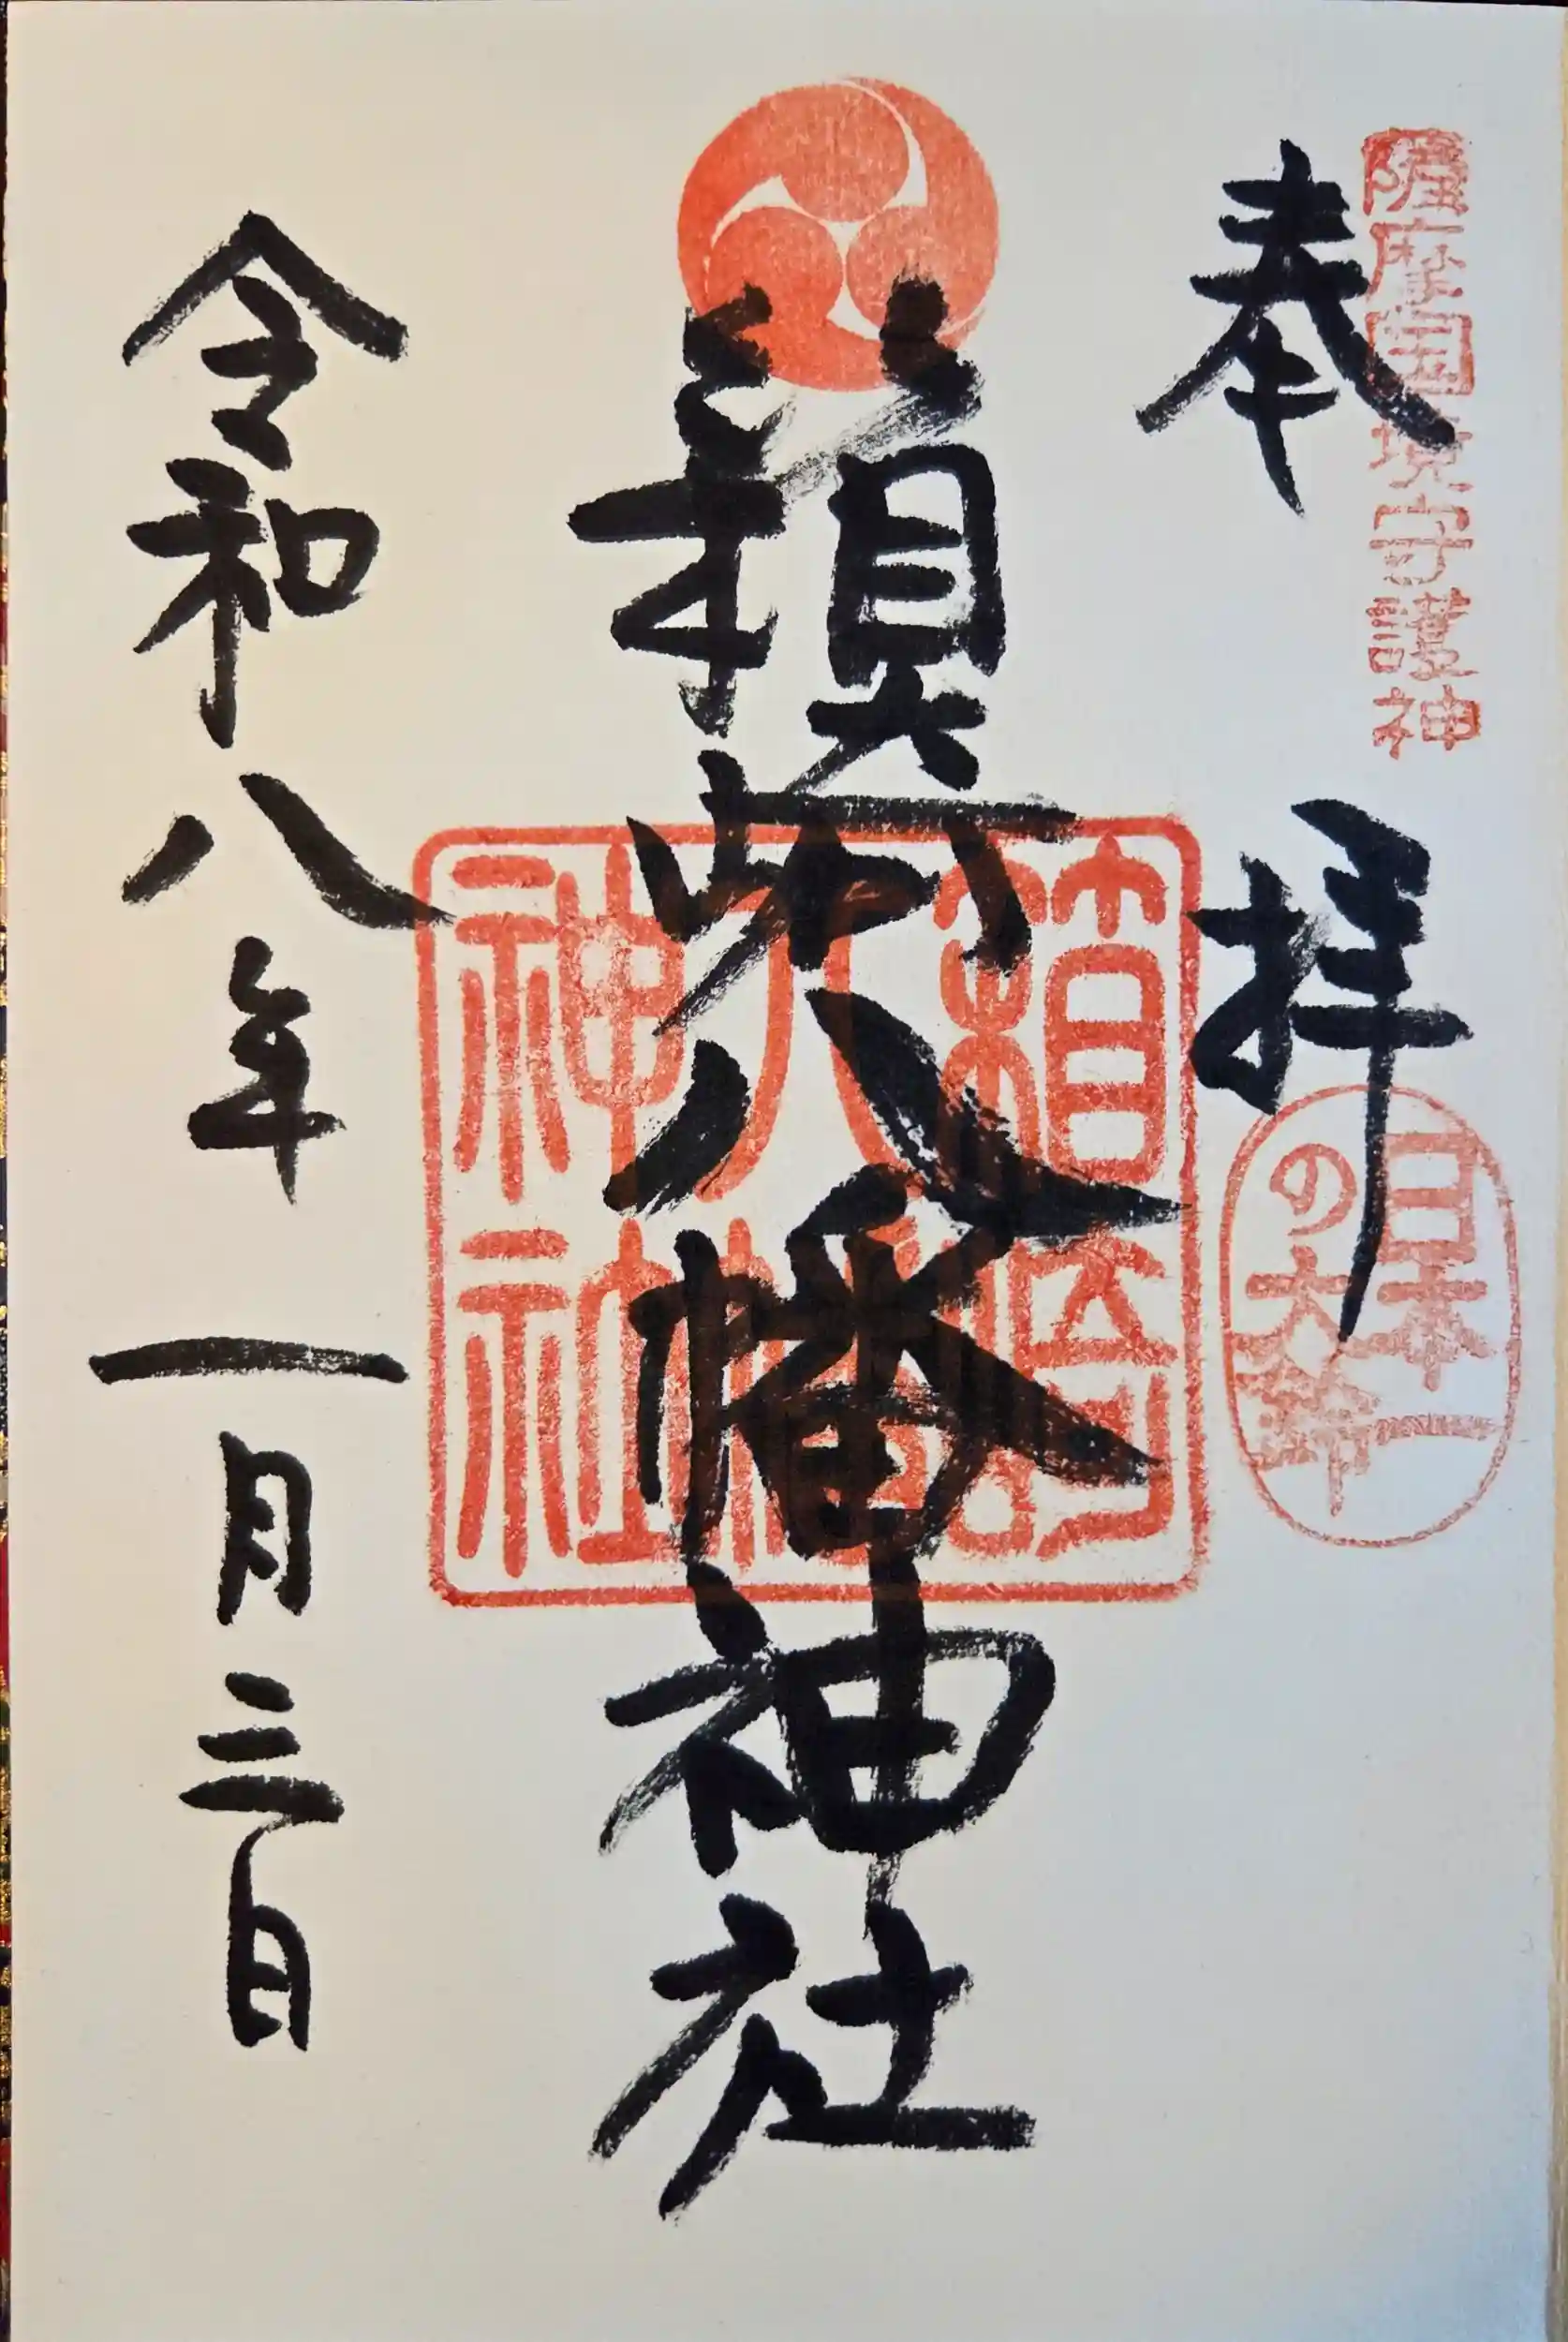 薩摩国境守護神
奉拝
日本一
の大鈴
箱崎八幡神社
箱崎
八幡
神社
令和八年一月三日